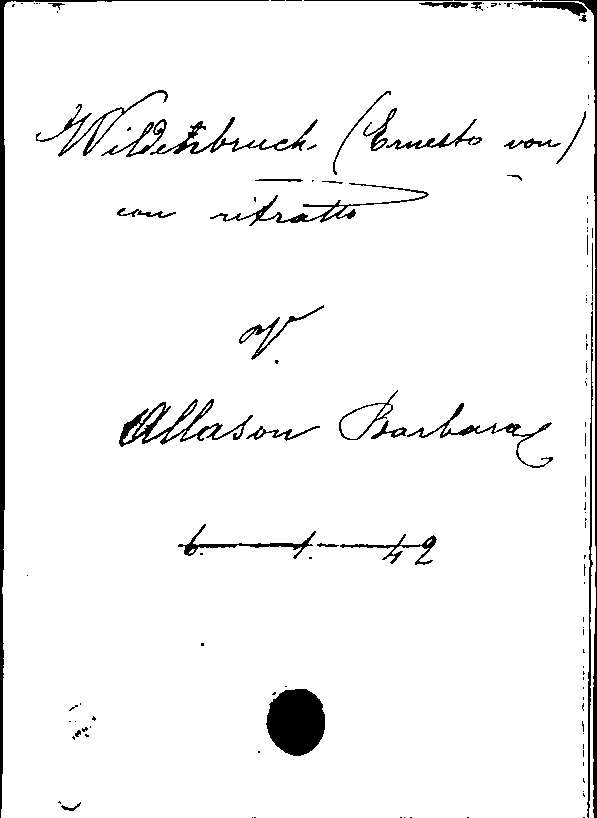 Wildenbruch (Ernesto von)
con ritratto
V.
Allason Barbara
6. 1. 42